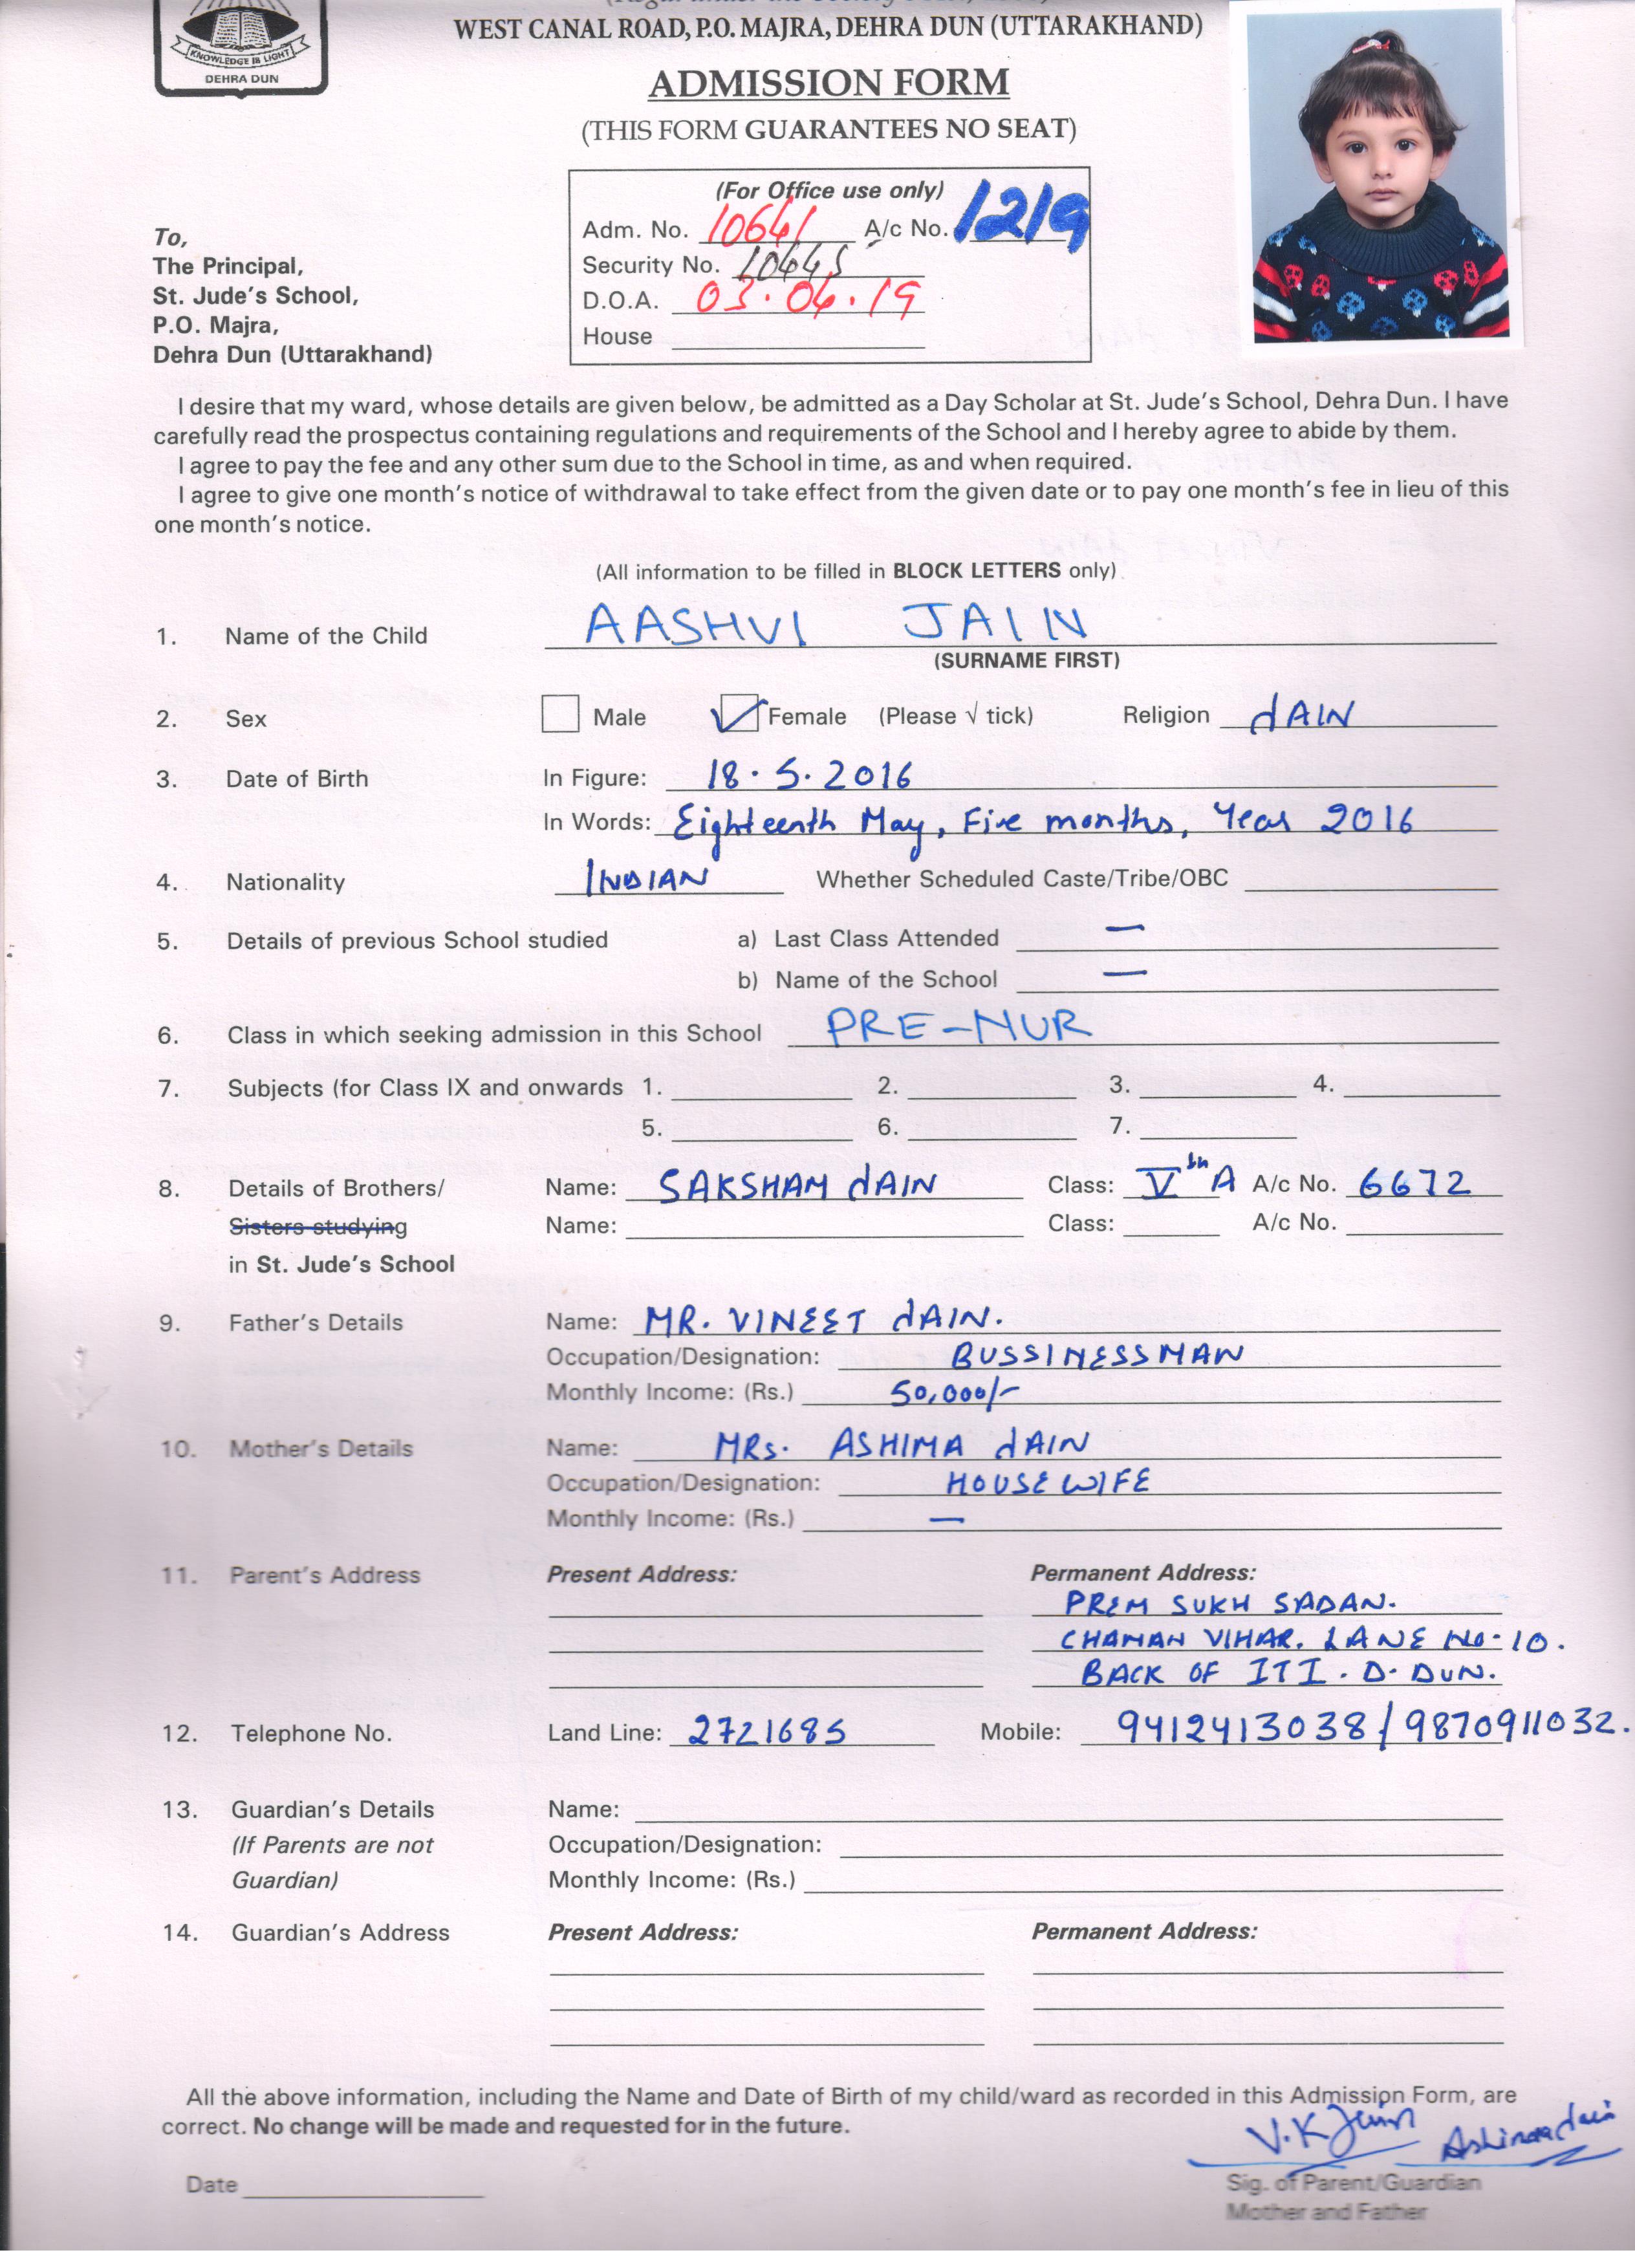 KNOWLEDGE IS LIGHT
DEHRA DUN
WEST CANAL ROAD, P.O. MAJRA, DEHRA DUN (UTTARAKHAND)
ADMISSION FORM
(THIS FORM GUARANTEES NO SEAT)
(For Office use only)
Adm. No. 10641 A/c No. 1219
Security No. 10445
D.O.A. 03.04.19
House
To,
The Principal,
St. Jude's School,
P.O. Majra,
Dehra Dun (Uttarakhand)
I desire that my ward, whose details are given below, be admitted as a Day Scholar at St. Jude's School, Dehra Dun. I have
carefully read the prospectus containing regulations and requirements of the School and I hereby agree to abide by them.
I agree to pay the fee and any other sum due to the School in time, as and when required.
I agree to give one month's notice of withdrawal to take effect from the given date or to pay one month's fee in lieu of this
one month's notice.
(All information to be filled in BLOCK LETTERS only)
1. Name of the Child AASHVI JAIN
(SURNAME FIRST)
2. Sex Male Female (Please √ tick) Religion JAIN
3. Date of Birth In Figure: 18.5.2016
In Words: Eighteenth May, Five months, Year 2016
4. Nationality INDIAN Whether Scheduled Caste/Tribe/OBC
5. Details of previous School studied a) Last Class Attended —
b) Name of the School —
6. Class in which seeking admission in this School PRE-NUR
7. Subjects (for Class IX and onwards 1. 2. 3. 4.
5. 6. 7.
8. Details of Brothers/ Name: SAKSHAM JAIN Class: Vth A A/c No. 6672
Sisters studying Name: Class: A/c No.
in St. Jude's School
9. Father's Details Name: MR. VINEET JAIN.
Occupation/Designation: BUSSINESSMAN
Monthly Income: (Rs.) 50,000/-
10. Mother's Details Name: MRs. ASHIMA JAIN
Occupation/Designation: HOUSEWIFE
Monthly Income: (Rs.) —
11. Parent's Address Present Address: Permanent Address:
PREM SUKH SADAN.
CHAMAN VIHAR. LANE No-10.
BACK OF ITI. D. DUN.
12. Telephone No. Land Line: 2721685 Mobile: 9412413038/9870911032.
13. Guardian's Details Name:
(If Parents are not Occupation/Designation:
Guardian) Monthly Income: (Rs.)
14. Guardian's Address Present Address: Permanent Address:
All the above information, including the Name and Date of Birth of my child/ward as recorded in this Admission Form, are
correct. No change will be made and requested for in the future.
V.K Jain Ashima Jain
Date Sig. of Parent/Guardian
Mother and Father